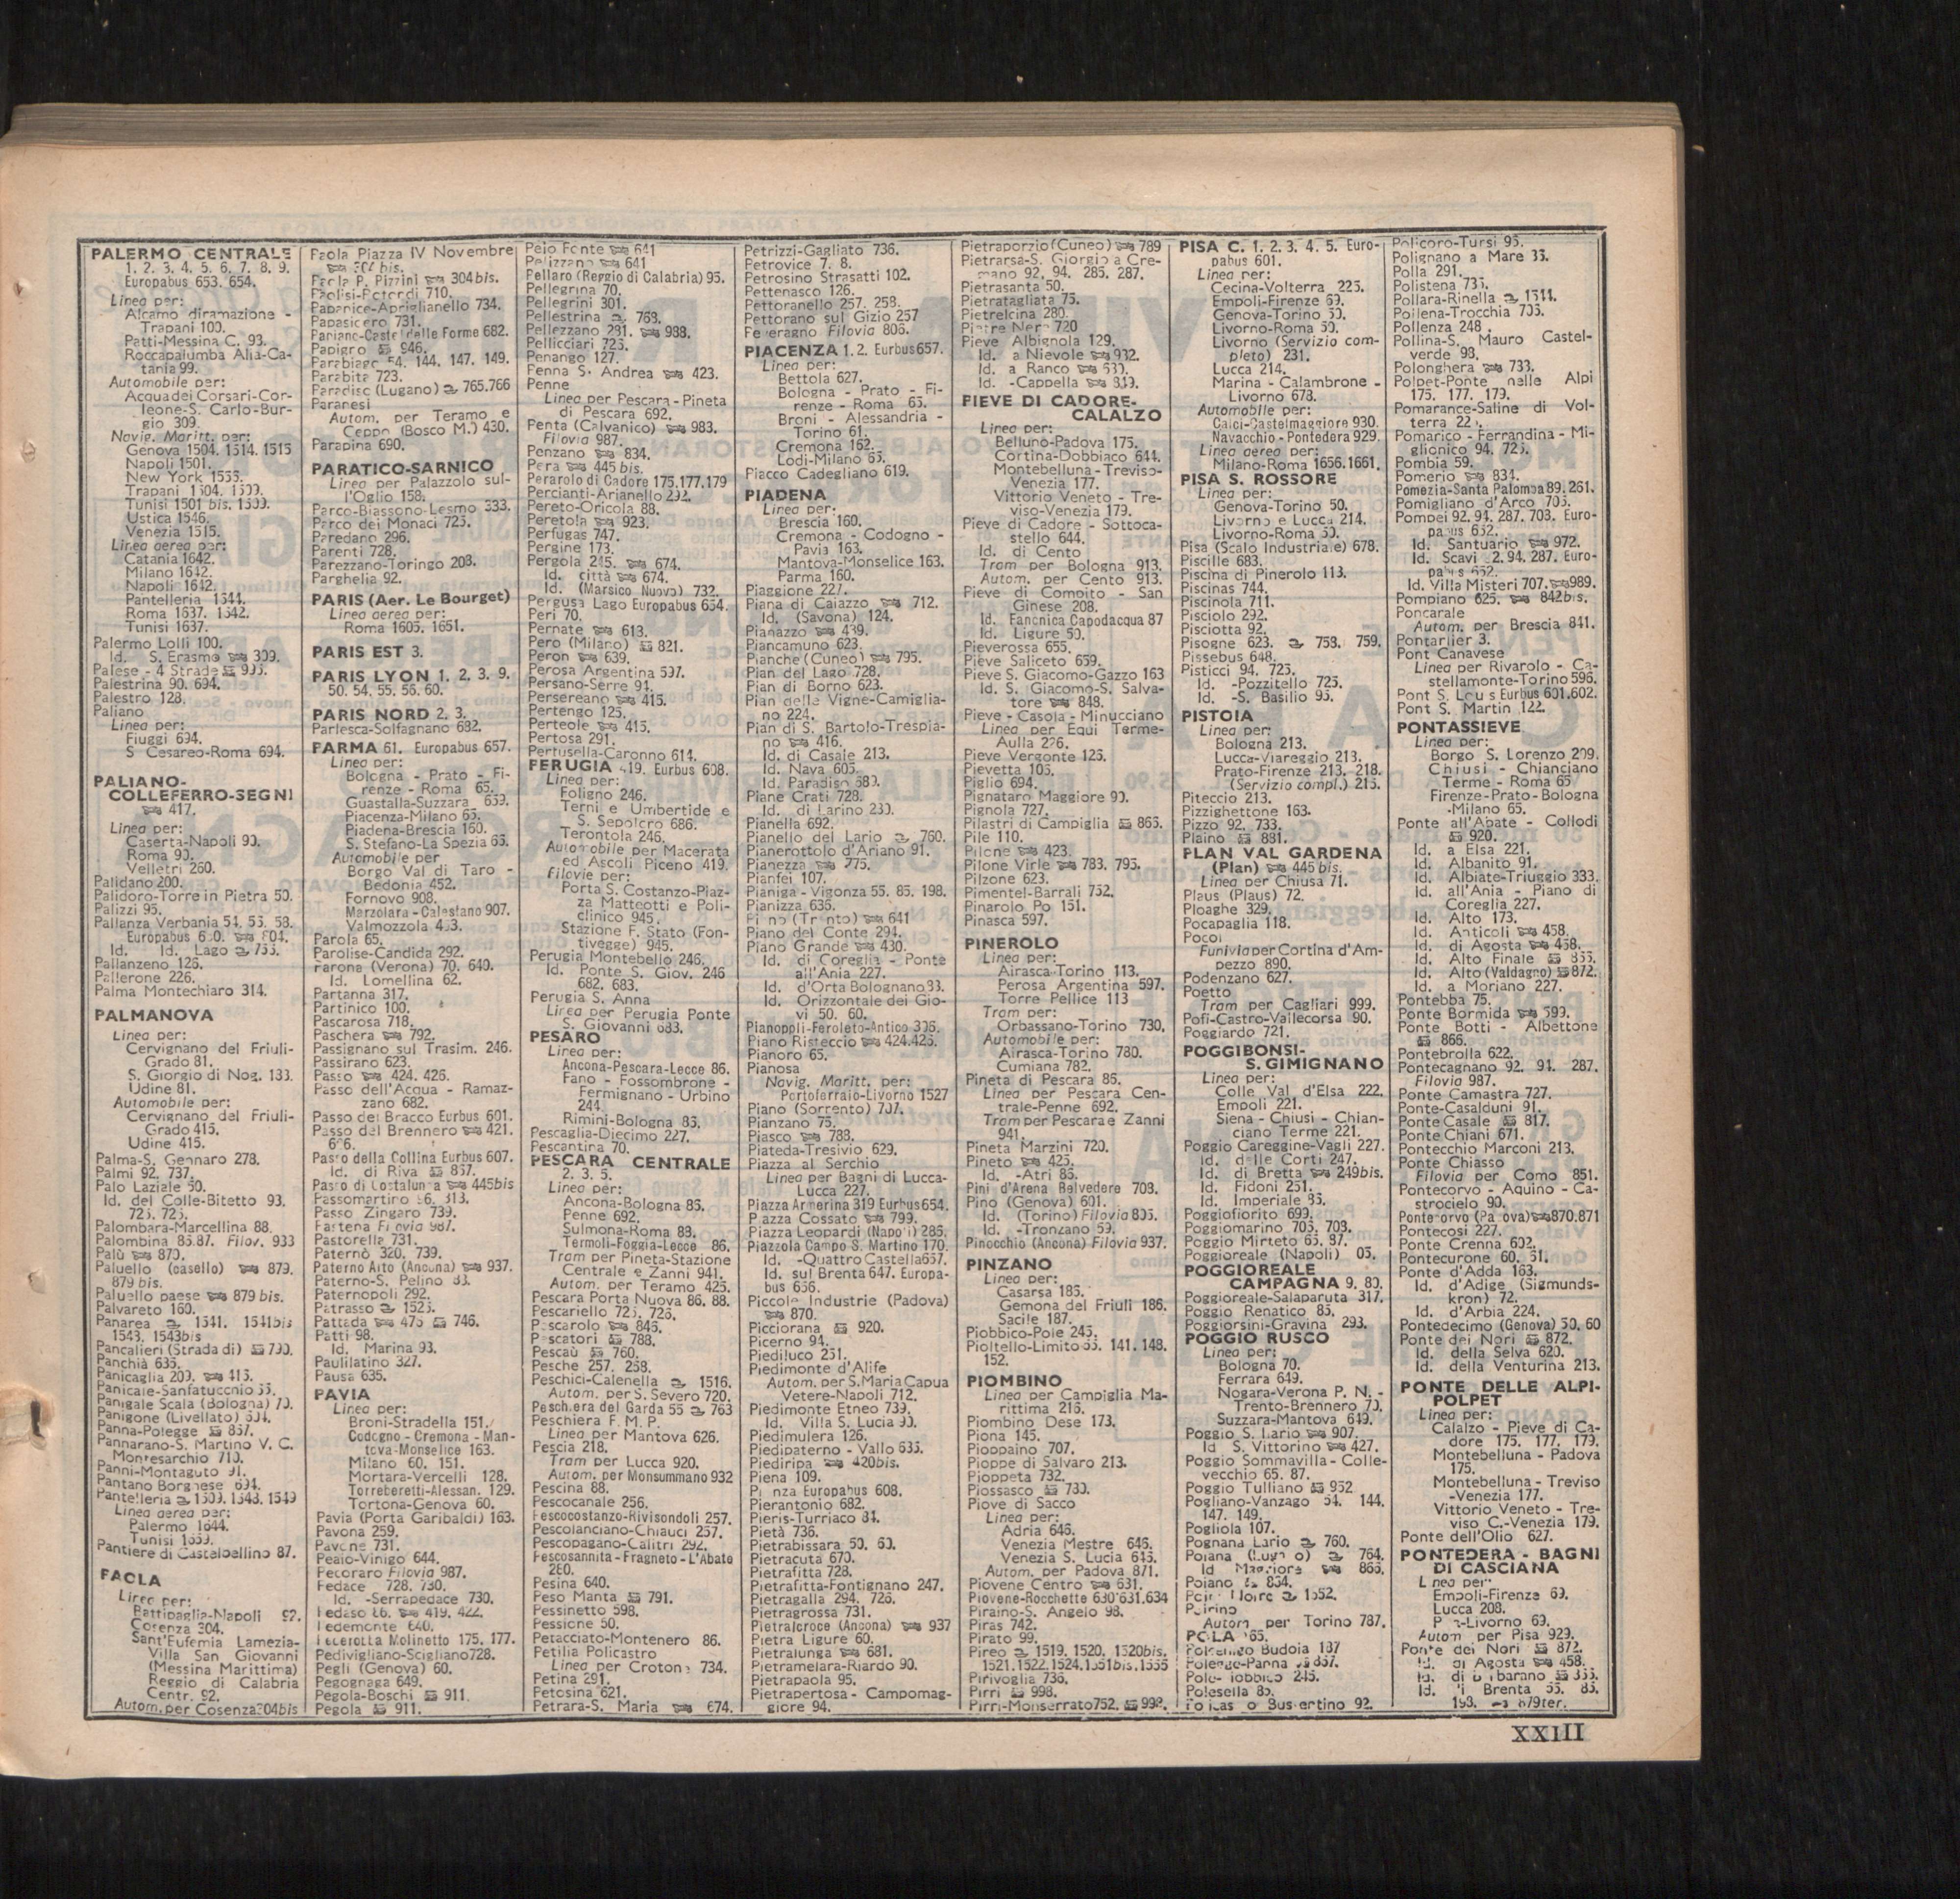 PALERMO CENTRALE
1. 2. 3. 4. 5. 6. 7. 8. 9.
Europabus 653. 654.
Linea per:
Alcamo diramazione -
Trapani 100.
Patti-Messina C. 93.
Roccapalumba Alia-Ca-
tania 99.
Automobile per:
Acquadei Corsari-Cor-
leone-S. Carlo-Bur-
gio 309.
Navig. Maritt. per:
Genova 1504. 1514. 1515
Napoli 1501.
New York 1555.
Trapani
Tunisi 1501 bis.
Ustica 1546.
Venezia 1515.
Linea aerea per:
Catania 1642.
Milano 1642.
Napoli 1642.
Pantelleria
Roma 1637.
Tunisi 1637.
Palermo Lolli 100.
Id. S. Erasmo 309.
Palese - 4 Strade
Palestrina 90. 694.
Palestro 128.
Paliano
Linea per:
Fiuggi 694.
S Cesareo-Roma 694.
PALIANO-
COLLEFERRO-SEGNI
417.
Linea per:
Caserta-Napoli 90.
Roma 90.
Velletri 260.
Palidano 200.
Palidoro-Torre in Pietra 50.
Palizzi 95.
Pallanza Verbania 54. 56. 58.
Europabus
Id. Id. Lago
Pallanzeno 126.
Pallerone 226.
Palma Montechiaro 314.
PALMANOVA
Linea per:
Cervignano del Friuli-
Grado 81.
S. Giorgio di Nog. 133.
Udine 81.
Automobile per:
Cervignano del Friuli-
Grado 415.
Udine 415.
Palma-S. Gennaro 278.
Palmi 92. 737.
Palo Laziale 50.
Id. del Colle-Bitetto 93.
725. 726.
Palombara-Marcellina 88.
Palombina 86.87. Filov. 933
Palù 870.
Paluello (casello) 879.
879 bis.
Paluello paese 879 bis.
Palvareto 160.
Panarea 1541. 1541bis
1543. 1543bis
Pancalieri (Strada di) 790.
Panchià 635.
Panicaglia 209. 416.
Panicale-Sanfatucchio
Panigale Scala (Bologna) 70.
Panigone (Livellato)
Panna-Polegge 867.
Pannarano-S. Martino V. C.
Montesarchio 710.
Panni-Montaguto 91.
Pantano Borghese 694.
Pantelleria 1509. 1548. 1549
Linea aerea per:
Palermo 1644.
Tunisi
Pantiere di Castelbellino 87.
PAOLA
Linea per:
Battipaglia-Napoli 92.
Cosenza 304.
Sant'Eufemia Lamezia-
Villa San Giovanni
(Messina Marittima)
Reggio di Calabria
Centr. 92.
Autom. per Cosenza 304bis
Paola Piazza IV Novembre
304 bis.
Paola P. Pizzini 304bis.
Paolisi-Rotondi 710.
Papanice-Apriglianello 734.
Papasidero 731.
Papiano-Castel delle Forme 682.
Papigno 946.
Parabiago 54. 144. 147. 149.
Parabita 723.
Paradiso (Lugano) 765.766
Paranesi
Autom. per Teramo e
Ceppo (Bosco M.) 430.
Parapina 690.
PARATICO-SARNICO
Linea per Palazzolo sul-
l'Oglio 158.
Parco-Biassono-Lesmo 333.
Parco dei Monaci 725.
Paredano 296.
Parenti 728.
Parezzano-Toringo 208.
Parghelia 92.
PARIS (Aer. Le Bourget)
Linea aerea per:
Roma 1605. 1651.
PARIS EST 3.
PARIS LYON 1. 2. 3. 9.
50. 54. 55. 56. 60.
PARIS NORD 2. 3.
Parlesca-Solfagnano 682.
PARMA 61. Europabus 657.
Linea per:
Bologna - Prato - Fi-
renze - Roma 65.
Guastalla-Suzzara 659.
Piacenza-Milano 65.
Piadena-Brescia 160.
S. Stefano-La Spezia 66.
Automobile per
Borgo Val di Taro -
Bedonia 452.
Fornovo 908.
Marzolara - Calestano 907.
Valmozzola
Parola 65.
Parolise-Candida 292.
Parona (Verona) 70. 640.
Id. Lomellina 62.
Partanna 317.
Partinico 100.
Pascarosa 718.
Paschera 792.
Passignano sul Trasim. 246.
Passirano 623.
Passo 424. 426.
Passo dell'Acqua - Ramaz-
zano 682.
Passo del Bracco Eurbus 601.
Passo del Brennero 421.
Passo della Collina Eurbus 607.
Id. di Riva 857.
Passo di Costalunga 445bis
Passomartino 96. 313.
Passo Zingaro 739.
Pastena Filovia 987.
Pastorella 731.
Paternò 320. 739.
Paterno Alto (Ancona) 937.
Paterno-S. Pelino 88.
Paternopoli 292.
Patrasso 1525.
Pattada 475 746.
Patti 98.
Id. Marina 93.
Paulilatino 327.
Pausa 635.
PAVIA
Linea per:
Broni-Stradella 151.
Codogno - Cremona - Man-
tova-Monselice 163.
Milano 60. 151.
Mortara-Vercelli 128.
Torreberetti-Alessan. 129.
Tortona-Genova 60.
Pavia (Porta Garibaldi) 163.
Pavona 259.
Pavone 731.
Peaio-Vinigo 644.
Pecoraro Filovia 987.
Pedace 728. 730.
Id. -Serrapedace 730.
Pedaso 86. 419. 422.
Pedemonte 640.
Pederotta Molinetto 175. 177.
Pedivigliano-Scigliano 728.
Pegli (Genova) 60.
Pegognaga 649.
Pegola-Boschi 911.
Pegola 911.
Peio Fonte 641
Pelizzano 641
Pellaro (Reggio di Calabria) 95.
Pellegrina 70.
Pellegrini 301.
Pellestrina 768.
Pellezzano 281. 988.
Pellicciari 725.
Penango 127.
Penna S. Andrea 423.
Penne
Linea per Pescara - Pineta
di Pescara 692.
Penta (Calvanico) 983.
Filovia 987.
Penzano 834.
Pera 445 bis.
Perarolo di Cadore 175.177.179
Percianti-Arianello 292.
Pereto-Oricola 88.
Peretola 923.
Perfugas 747.
Pergine 173.
Pergola 245. 674.
Id. città 674.
Id. (Marsico Nuovo) 732.
Pergusa Lago Europabus 654.
Peri 70.
Pernate 613.
Pero (Milano) 821.
Peron 639.
Perosa Argentina 597.
Persano-Serre 94.
Persereano 415.
Pertengo 125.
Perteole 415.
Pertosa 291.
Pertusella-Caronno 614.
PERUGIA 419. Eurbus 608.
Linea per:
Foligno 246.
Terni e Umbertide e
S. Sepolcro 686.
Terontola 246.
Automobile per Macerata
ed Ascoli Piceno 419.
Filovie per:
Porta S. Costanzo-Piaz-
za Matteotti e Poli-
clinico 945.
Stazione F. Stato (Fon-
tivegge) 945.
Perugia Montebello 246.
Id. Ponte S. Giov. 246
682. 683.
Perugia S. Anna
Linea per Perugia Ponte
S. Giovanni 683.
PESARO
Linea per:
Ancona-Pescara-Lecce 86.
Fano - Fossombrone -
Fermignano - Urbino
244.
Rimini-Bologna 86.
Pescaglia-Diecimo 227.
Pescantina 70.
PESCARA CENTRALE
2. 3. 5.
Linea per:
Ancona-Bologna 86.
Penne 692.
Sulmona-Roma 88.
Termoli-Foggia-Lecce 86.
Tram per Pineta-Stazione
Centrale e Zanni 941.
Autom. per Teramo 425.
Pescara Porta Nuova 86. 88.
Pescariello 725. 726.
Pescarolo 846.
Pescatori 788.
Pescaù 760.
Pesche 257. 258.
Peschici-Calenella 1516.
Autom. per S. Severo 720.
Peschiera del Garda 55 763
Peschiera F. M. P.
Linea per Mantova 626.
Pescia 218.
Tram per Lucca 920.
Autom. per Monsummano 932
Pescina 88.
Pescocanale 256.
Pescocostanzo-Rivisondoli 257.
Pescolanciano-Chiauci 257.
Pescopagano-Calitri 292.
Pescosannita - Fragneto - L'Abate
280.
Pesina 640.
Peso Manta 791.
Pessinetto 598.
Pessione 50.
Petacciato-Montenero 86.
Petilia Policastro
Linea per Crotone 734.
Petina 291.
Petosina 621.
Petrara-S. Maria 674.
Petrizzi-Gagliato 736.
Petrovice 7. 8.
Petrosino Strasatti 102.
Pettenasco 126.
Pettoranello 257. 258.
Pettorano sul Gizio 257
Peveragno Filovia 806.
PIACENZA 1. 2. Eurbus 657.
Linea per:
Bettola 627.
Bologna - Prato - Fi-
renze - Roma 65.
Broni - Alessandria -
Torino 61.
Cremona 162.
Lodi-Milano 65.
Piacco Cadegliano 619.
PIADENA
Linea per:
Brescia 160.
Cremona - Codogno -
Pavia 163.
Mantova-Monselice 163.
Parma 160.
Piaggione 227.
Piana di Caiazzo 712.
Id. (Savona) 124.
Pianazzo 439.
Piancamuno 623.
Pianche (Cuneo) 795.
Pian del Lago 728.
Pian di Borno 623.
Pian delle Vigne-Camiglia-
no 224.
Pian di S. Bartolo-Trespia-
no 416.
Id. di Casale 213.
Id. Nava 605.
Id. Paradiso 589.
Piane Crati 728.
Id. di Larino 280.
Pianella 692.
Pianello del Lario 760.
Pianerottolo d'Ariano 91.
Pianezza 775.
Pianfei 107.
Pianiga - Vigonza 55. 85. 198.
Pianizza 636.
Piano (Trento) 641
Piano del Conte 294.
Piano Grande 430.
Id. di Coreglia - Ponte
all'Ania 227.
Id. d'Orta Bolognano 88.
Id. Orizzontale dei Gio-
vi 50. 60.
Pianoppli-Feroleto-Antico 306.
Piano Risteccio 424.426.
Pianoro 65.
Pianosa
Navig. Maritt. per:
Portoferraio-Livorno 1527
Piano (Sorrento) 707.
Pianzano 75.
Piasco 788.
Piateda-Tresivio 629.
Piazza al Serchio
Linea per Bagni di Lucca-
Lucca 227.
Piazza Armerina 319 Eurbus 654.
Piazza Cossato 799.
Piazza Leopardi (Napoli) 286.
Piazzola Campo S. Martino 170.
Id. -Quattro Castella 657.
Id. sul Brenta 647. Europa-
bus 656.
Piccole Industrie (Padova)
870.
Picciorana 920.
Picerno 94.
Piediluco 251.
Piedimonte d'Alife
Autom. per S. Maria Capua
Vetere-Napoli 712.
Piedimonte Etneo 739.
Id. Villa S. Lucia 90.
Piedimulera 126.
Piedipaterno - Vallo 685.
Piediripa 420bis.
Piena 109.
Pienza Europabus 608.
Pierantonio 682.
Pieris-Turriaco 84.
Pietà 736.
Pietrabissara 50. 60.
Pietracuta 670.
Pietrafitta 728.
Pietrafitta-Fontignano 247.
Pietragalla 294. 726.
Pietragrossa 731.
Pietralcroce (Ancona) 937
Pietra Ligure 60.
Pietralunga 681.
Pietramelara-Riardo 90.
Pietrapaola 95.
Pietrapertosa - Campomag-
giore 94.
Pietraporzio (Cuneo) 789
Pietrarsa-S. Giorgio a Cre-
mano 92. 94. 285. 287.
Pietrasanta 50.
Pietratagliata 75.
Pietrelcina 280.
Pietre Nere 720
Pieve Albignola 129.
Id. a Nievole 932.
Id. a Ranco 680.
Id. -Cappella 849.
PIEVE DI CADORE-
CALALZO
Linea per:
Belluno-Padova 175.
Cortina-Dobbiaco 644.
Montebelluna - Treviso-
Venezia 177.
Vittorio Veneto - Tre-
viso-Venezia 179.
Pieve di Cadore - Sottoca-
stello 644.
Id. di Cento
Tram per Bologna 913.
Autom. per Cento 913.
Pieve di Comoito - San
Ginese 208.
Id. Fancnica Capodacqua 87
Id. Ligure 50.
Pieverossa 655.
Pieve Saliceto 659.
Pieve S. Giacomo-Gazzo 163
Id. S. Giacomo-S. Salva-
tore 848.
Pieve - Casola - Minucciano
Linea per Equi Terme-
Aulla 226.
Pieve Vergonte 126.
Pievetta 105.
Piglio 694.
Pignataro Maggiore 90.
Pignola 727.
Pilastri di Campiglia 865.
Pile 110.
Pilone 423.
Pilone Virle 783. 795.
Pilzone 623.
Pimentel-Barrali 752.
Pinarolo Po 151.
Pinasca 597.
PINEROLO
Linea per:
Airasca-Torino 113.
Perosa Argentina 597.
Torre Pellice 113
Tram per:
Orbassano-Torino 730.
Automobile per:
Airasca-Torino 780.
Cumiana 782.
Pineta di Pescara 86.
Linea per Pescara Cen-
trale-Penne 692.
Tram per Pescara e Zanni
941.
Pineta Marzini 720.
Pineto 425.
Id. -Atri 86.
Pini d'Arena Belvedere 708.
Pino (Genova) 601.
Id. (Torino) Filovia 805.
Id. -Tronzano 59.
Pinocchio (Ancona) Filovia 937.
PINZANO
Linea per:
Casarsa 186.
Gemona del Friuli 186.
Sacile 187.
Piobbico-Pole 245.
Pioltello-Limito 55. 141. 148.
152.
PIOMBINO
Linea per Campiglia Ma-
rittima 216.
Piombino Dese 173.
Piona 145.
Pioppaino 707.
Pioppe di Salvaro 213.
Pioppeta 732.
Piossasco 780.
Piove di Sacco
Linea per:
Adria 646.
Venezia Mestre 646.
Venezia S. Lucia 646.
Autom. per Padova 871.
Piovene Centro 631.
Piovene-Rocchette 630 631.634
Piraino-S. Angelo 98.
Piras 742.
Pirato 99.
Pireo 1519. 1520. 1520bis.
1521.1522.1524.1551bis.1555
Pirivoglia 736.
Pirri 998.
Pirri-Monserrato 752. 998.
PISA C. 1. 2. 3. 4. 5. Euro-
pabus 601.
Linea per:
Cecina-Volterra 225.
Empoli-Firenze 69.
Genova-Torino 50.
Livorno-Roma 50.
Livorno (Servizio com-
pleto) 231.
Lucca 214.
Marina - Calambrone -
Livorno 678.
Automobile per:
Calci-Castelmaggiore 930.
Navacchio - Pontedera 929.
Linea aerea per:
Milano-Roma 1656.1661.
PISA S. ROSSORE
Linea per:
Genova-Torino 50.
Livorno e Lucca 214.
Livorno-Roma 50.
Pisa (Scalo Industriale) 678.
Piscille 683.
Piscina di Pinerolo 113.
Piscinas 744.
Piscinola 711.
Pisciolo 292.
Pisciotta 92.
Pisogne 623. 758. 759.
Pissebus 648.
Pisticci 94. 725.
Id. -Pozzitello 725.
Id. -S. Basilio 95.
PISTOIA
Linea per:
Bologna 213.
Lucca-Viareggio 213.
Prato-Firenze 213. 218.
(Servizio compl.) 215.
Piteccio 213.
Pizzighettone 163.
Pizzo 92. 733.
Plaino 881.
PLAN VAL GARDENA
(Plan) 445 bis.
Linea per Chiusa 71.
Plaus (Plaus) 72.
Ploaghe 329.
Pocapaglia 118.
Pocol
Funivia per Cortina d'Am-
pezzo 890.
Podenzano 627.
Poetto
Tram per Cagliari 999.
Pofi-Castro-Vallecorsa 90.
Poggiardo 721.
POGGIBONSI-
S. GIMIGNANO
Linea per:
Colle Val d'Elsa 222.
Empoli 221.
Siena - Chiusi - Chian-
ciano Terme 221.
Poggio Careggine-Vagli 227.
Id. delle Corti 247.
Id. di Bretta 249bis.
Id. Fidoni 251.
Id. Imperiale 86.
Poggiofiorito 699.
Poggiomarino 705. 708.
Poggio Mirteto 65. 87.
Poggioreale (Napoli)
POGGIOREALE
CAMPAGNA 9. 80.
Poggioreale-Salaparuta 317.
Poggio Renatico 85.
Poggiorsini-Gravina 293.
POGGIO RUSCO
Linea per:
Bologna 70.
Ferrara 649.
Nogara-Verona P. N. -
Trento-Brennero 70.
Suzzara-Mantova 649.
Poggio S. Ilario 907.
Id S. Vittorino 427.
Poggio Sommavilla - Colle-
vecchio 65. 87.
Poggio Tulliano 952
Pogliano-Vanzago 54. 144.
147. 149.
Pogliola 107.
Pognana Lario 760.
Poiana 764.
Id Maggiore 866.
Poiano 884.
1552.
Poirino
Autom. per Torino 787.
POLA
Polcenigo Budoia 187
Polegge-Panna 867.
Pole-Piobbico 245.
Polesella 85.
92.
Policoro-Tursi 95.
Polignano a Mare 86.
Polla 291.
Polistena 735.
Pollara-Rinella 1544.
Pollena-Trocchia 705.
Pollenza 248.
Pollina-S. Mauro Castel-
verde 98.
Polonghera 733.
Polpet-Ponte nelle Alpi
175. 177. 179.
Pomarance-Saline di Vol-
terra
Pomarico - Ferrandina - Mi-
glionico 94. 725.
Pombia 59.
Pomerio 834.
Pomezia-Santa Palomba 89. 261.
Pomigliano d'Arco 705.
Pompei 92. 94. 287. 708. Euro-
pabus 652.
Id. Santuario 972.
Id. Scavi 92. 94. 287. Euro-
pabus 652.
Id. Villa Misteri 707. 989.
Pompiano 625. 842bis.
Poncarale
Autom. per Brescia 841.
Pontarlier 3.
Pont Canavese
Linea per Rivarolo - Ca-
stellamonte-Torino 596.
Pont S. Louis Eurbus 601.602.
Pont S. Martin 122.
PONTASSIEVE
Linea per:
Borgo S. Lorenzo 209.
Chiusi - Chianciano
Terme - Roma 65
Firenze-Prato-Bologna
-Milano 65.
Ponte all'Abate - Collodi
920.
Id. a Elsa 221.
Id. Albanito 91.
Id. Albiate-Triuggio 333.
Id. all'Ania - Piano di
Coreglia 227.
Id. Alto 173.
Id. Anticoli 458.
Id. di Agosta 458.
Id. Alto Finale
Id. Alto (Valdagno) 872.
Id. a Moriano 227.
Pontebba 75.
Ponte Bormida 599.
Ponte Botti - Albettone
866.
Pontebrolla 622.
Pontecagnano 92. 94. 287.
Filovia 987.
Ponte Camastra 727.
Ponte-Casalduni 91.
Ponte Casale 817.
Ponte Chiani 671.
Pontecchio Marconi 213.
Ponte Chiasso
Filovia per Como 851.
Pontecorvo - Aquino - Ca-
strocielo 90.
Pontecorvo (Padova) 870.871
Pontecosi 227.
Ponte Crenna 602.
Pontecurone 60. 61.
Ponte d'Adda 163.
Id. d'Adige (Sigmunds-
kron) 72.
Id. d'Arbia 224.
Pontedecimo (Genova) 50. 60
Ponte dei Nori 872.
Id. della Selva 620.
Id. della Venturina 213.
PONTE DELLE ALPI-
POLPET
Linea per:
Calalzo - Pieve di Ca-
dore 175. 177. 179.
Montebelluna - Padova
175.
Montebelluna - Treviso
-Venezia 177.
Vittorio Veneto - Tre-
viso C.-Venezia 179.
Ponte dell'Olio 627.
PONTEDERA - BAGNI
DI CASCIANA
Linea per:
Empoli-Firenze 69.
Lucca 208.
Pisa-Livorno 69.
Autom per Pisa 929.
Ponte dei Nori 872.
Id. di Agosta 458.
Id. di Barbarano
Id. di Brenta 55. 85.
198. 879ter.
XXIII